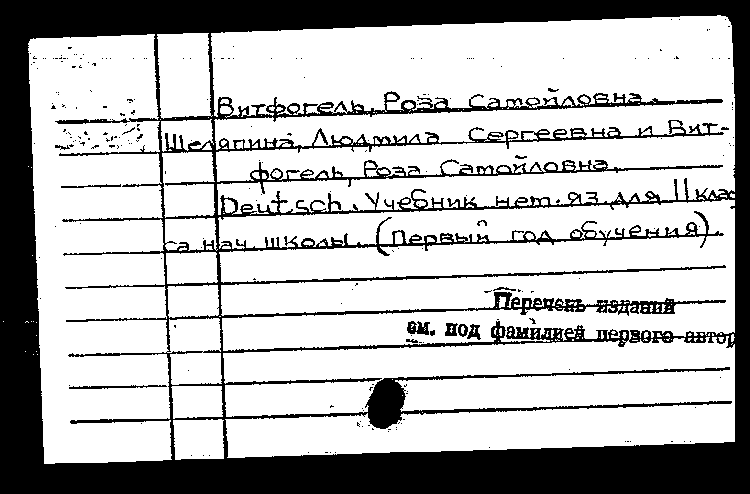 Витфогель, Роза Самойловна.
Шеляпина, Людмила Сергеевна и Вит-
фогель, Роза Самойловна.
Deutsch. Учебник нем. яз. для II клас
са нач. школы. (Первый год обучения).
Перечень изданий
см. под фамилией первого автор